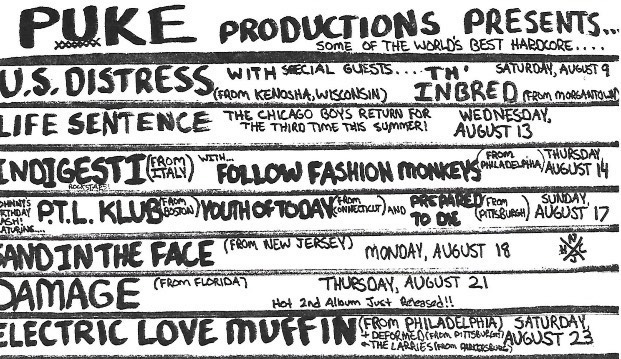 PUKE PRODUCTIONS PRESENTS...
SOME OF THE WORLD'S BEST HARDCORE....
U.S. DISTRESS WITH SPECIAL GUESTS.... TH' INBRED SATURDAY, AUGUST 9
(FROM KENOSHA, WISCONSIN) (FROM MORGANTOWN)
LIFE SENTENCE THE CHICAGO BOYS RETURN FOR THE THIRD TIME THIS SUMMER! WEDNESDAY, AUGUST 13
INDIGESTI (FROM ITALY) WITH... FOLLOW FASHION MONKEYS (FROM PHILADELPHIA) THURSDAY, AUGUST 14
ROCKSTARS!
P.T.L. KLUB (FROM BOSTON) YOUTH OF TODAY (FROM CONNECTICUT) AND PREPARED TO DIE (FROM PITTSBURGH) SUNDAY, AUGUST 17
SAND IN THE FACE (FROM NEW JERSEY) MONDAY, AUGUST 18
DAMAGE (FROM FLORIDA) THURSDAY, AUGUST 21
Hot 2nd Album Just Released!!
ELECTRIC LOVE MUFFIN (FROM PHILADELPHIA) SATURDAY, AUGUST 23
+ DEFORMED (FROM PITTSBURGH)
+ THE LARRIES (FROM PARKERSBURG)